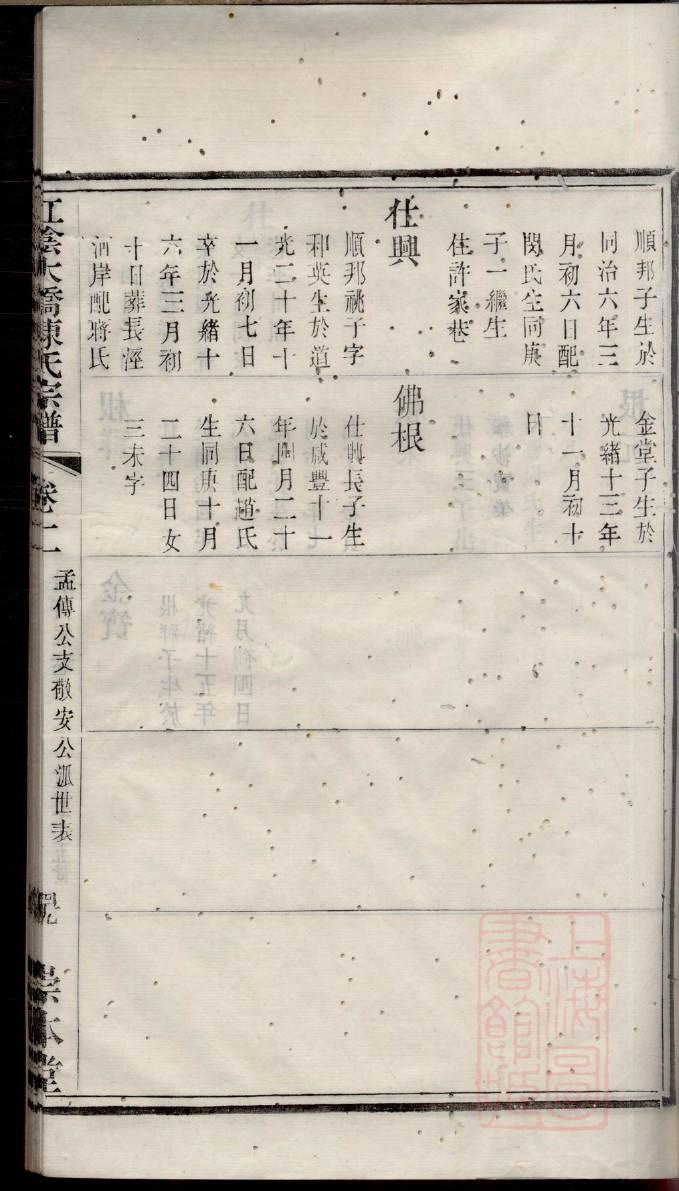 順邦子生於
同治六年三
月初六日配
閔氏生同庚
子一繼生
住許家巷
仕興
順邦祧子字
和英生於道
光二十年十
一月初七日
卒於光緒十
六年三月初
十日葬長涇
河岸配蔣氏
金堂子生於
光緒十三年
十一月初十
日
佛根
仕興長子生
於咸豐十一
年四月二十
六日配趙氏
生同庚十月
二十四日女
三未字
江陰大橋陳氏宗譜
卷十一
孟傳公支敬安公派世表
宗本堂
上海圖書館藏